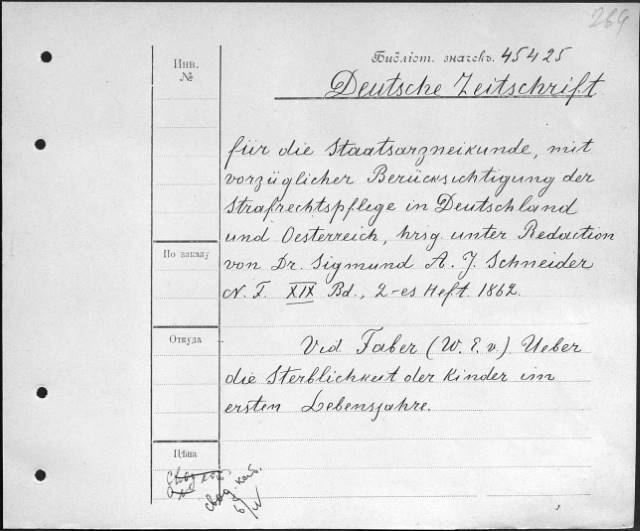 269
Библіот. значекъ. 45425
Инв.
№
Deutsche Zeitschrift
für die Staatsarzneikunde, mit
vorzüglicher Berücksichtigung der
Strafrechtspflege in Deutschland
und Oesterreich, hrsg. unter Redaction
По заказу
von Dr. Sigmund A. J. Schneider
N. F. XIX Bd., 2-es Heft. 1862.
Откуда
Vid. Faber (W. E. v.) Ueber
die Sterblichkeit der Kinder im
ersten Lebensjahre.
Цѣна
свод. кат.
6/V